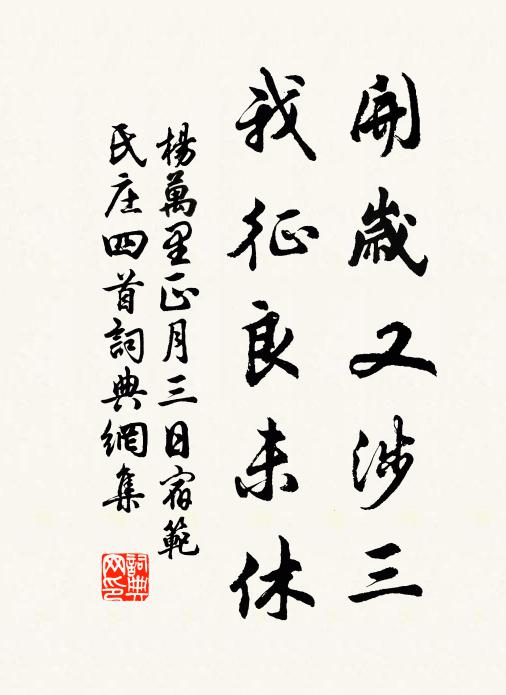 開歲又涉三
我征良未休
楊萬里正月三日宿範
氏庄四首詞典網集
詞典
网印